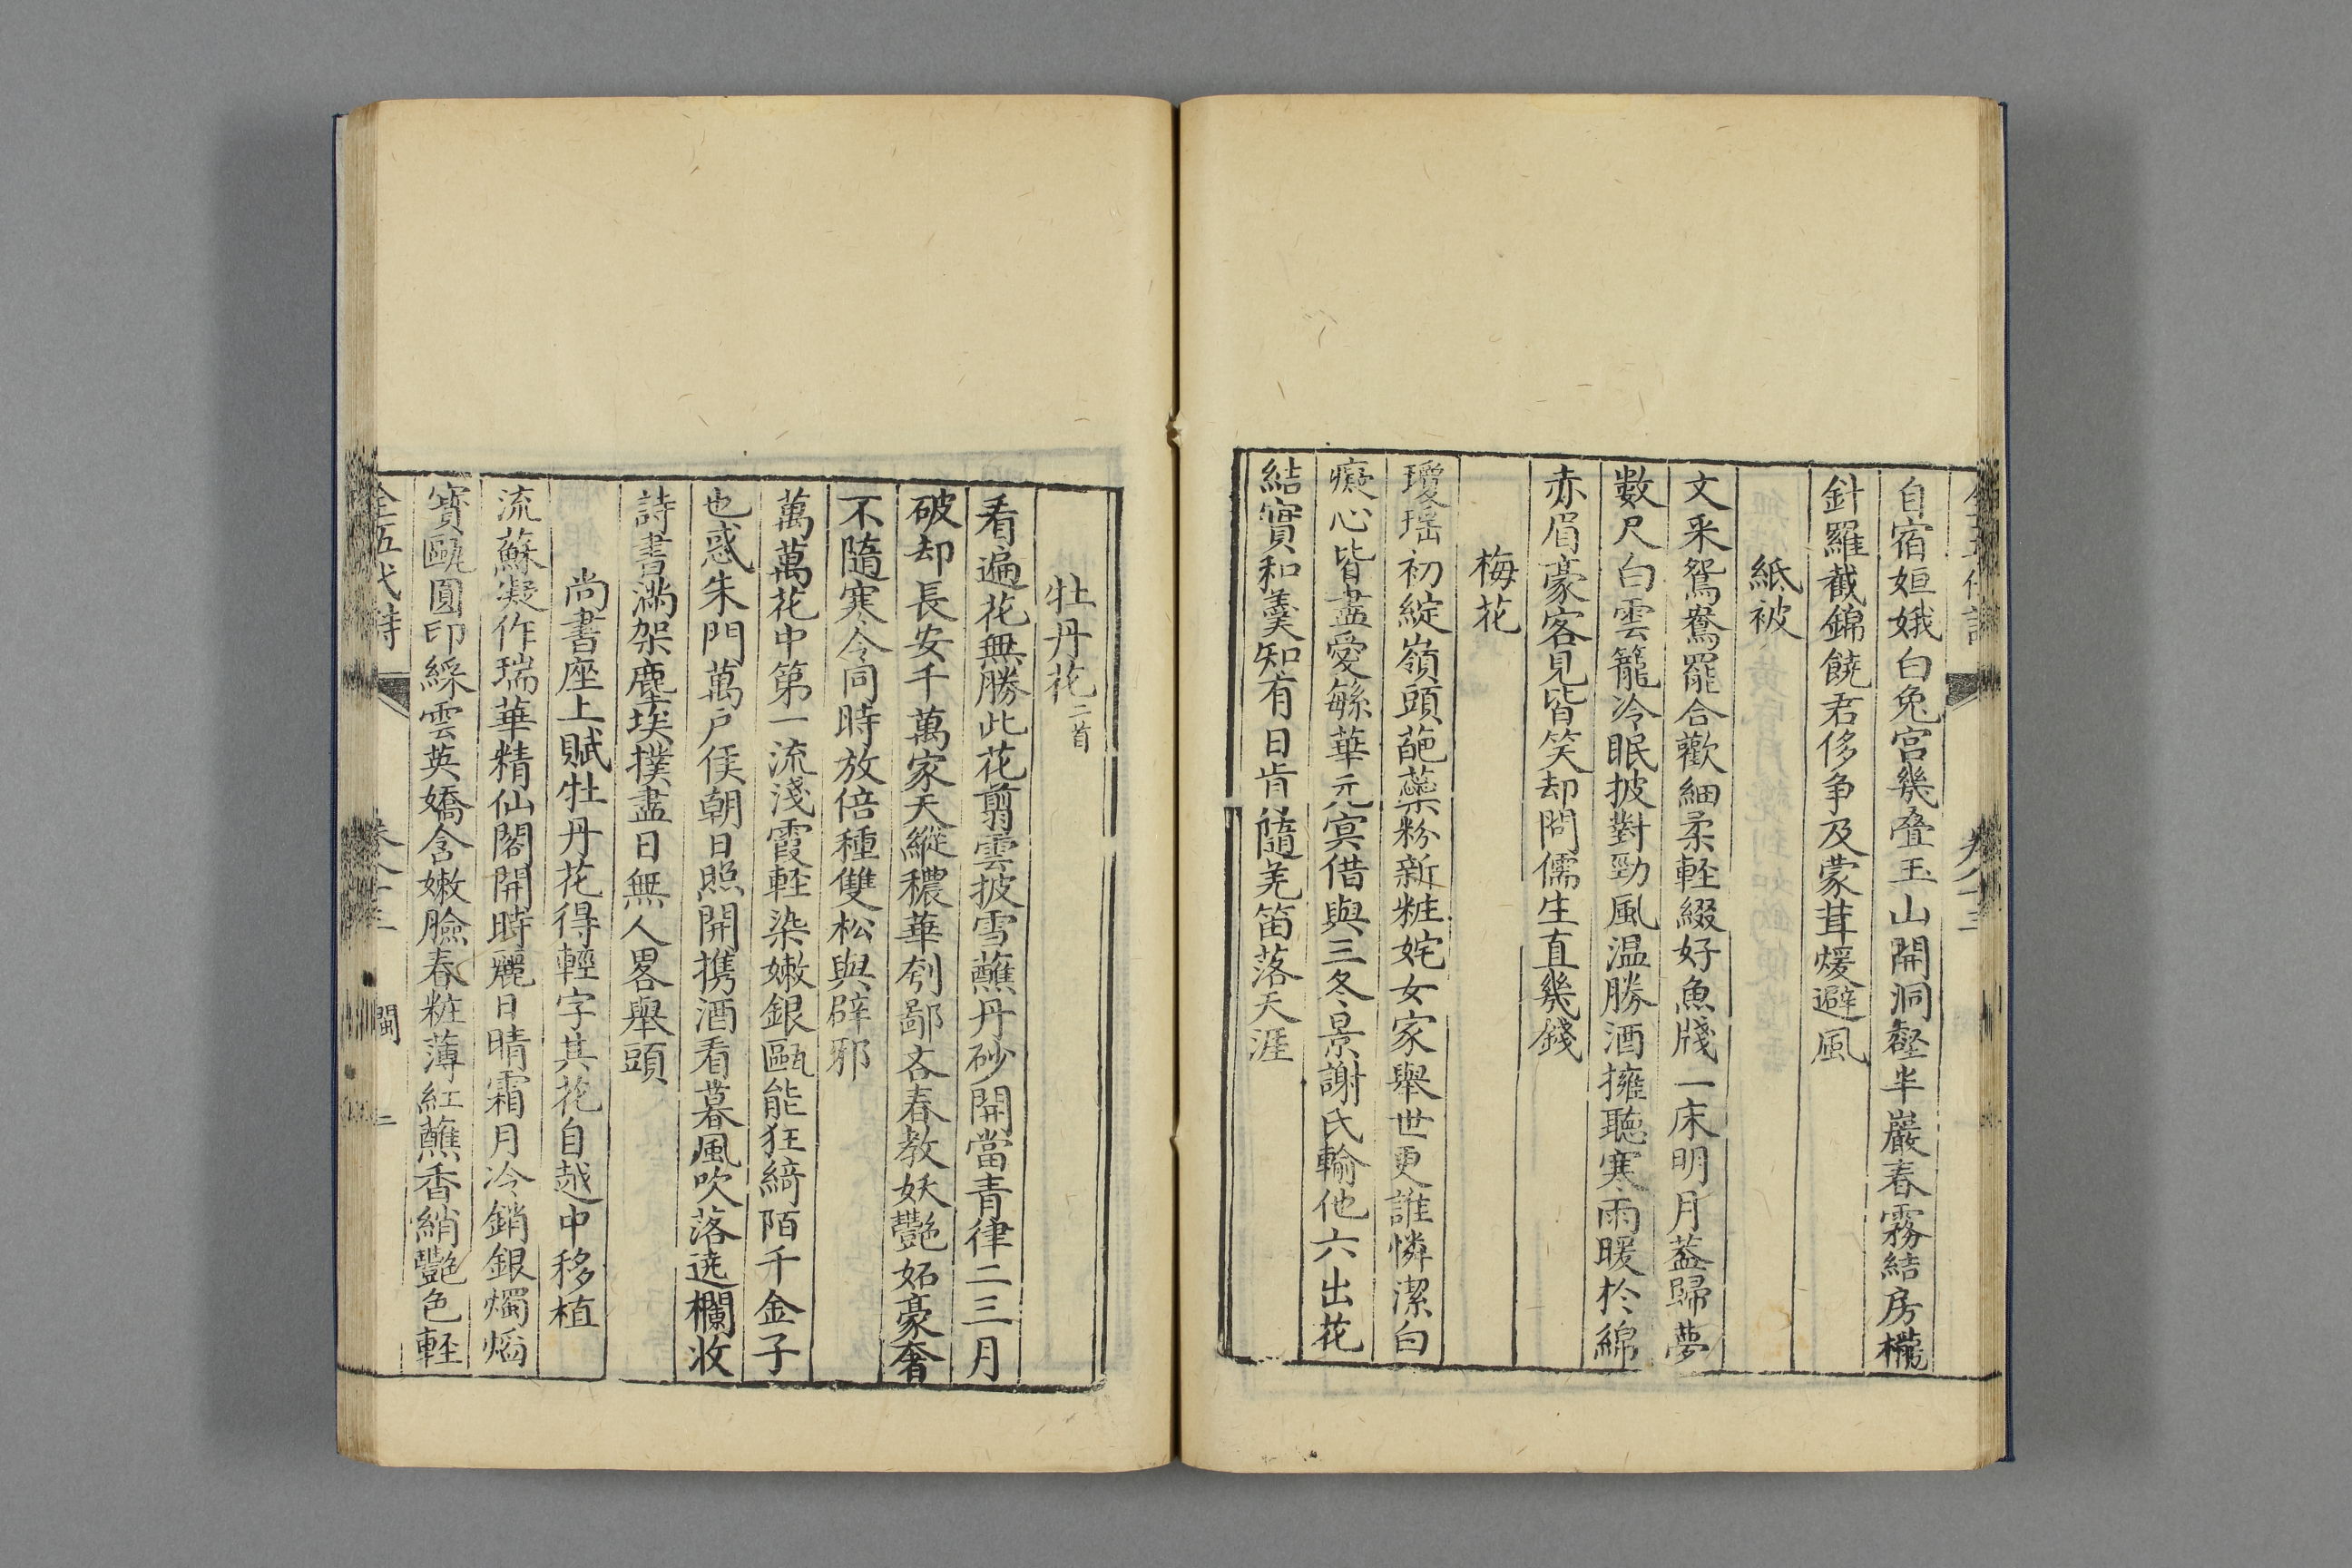 自宿姮娥白兔宮幾叠玉山開洞壑半巖春霧結房櫳
針羅截錦饒君侈争及蒙茸煖避風
紙被
文采鴛鴦罷合歡細柔軽綴好魚牋一床明月蓋歸夢
數尺白雲籠冷眠披對勁風温勝酒擁聽寒雨暖於綿
赤眉豪客見皆笑却問儒生直幾錢
梅花
瓊瑶初綻嶺頭葩蘂粉新粧姹女家舉世更誰憐潔白
癡心皆盡愛繁華元冥借與三冬景謝氏輸他六出花
結實和羹知有日肯隨羌笛落天涯
牡丹花二首
看遍花無勝此花翦雲披雪蘸丹砂開當青律二三月
破却長安千萬家天縱穠華刳鄙吝春教妖艷妬豪奢
不隨寒令同時放倍種雙松與辟邪
萬萬花中第一流淺霞軽染嫩銀甌能狂綺陌千金子
也惑朱門萬户侯朝日照開携酒看暮風吹落遶欄收
詩書滿架塵埃撲盡日無人畧舉頭
尚書座上賦牡丹花得輕字其花自越中移植
流蘇凝作瑞華精仙閣開時麗日晴霜月冷銷銀燭熖
寶甌圓印綵雲英嬌含嫩臉春粧薄紅蘸香綃艷色軽
全五代詩 卷八十三 閩 二